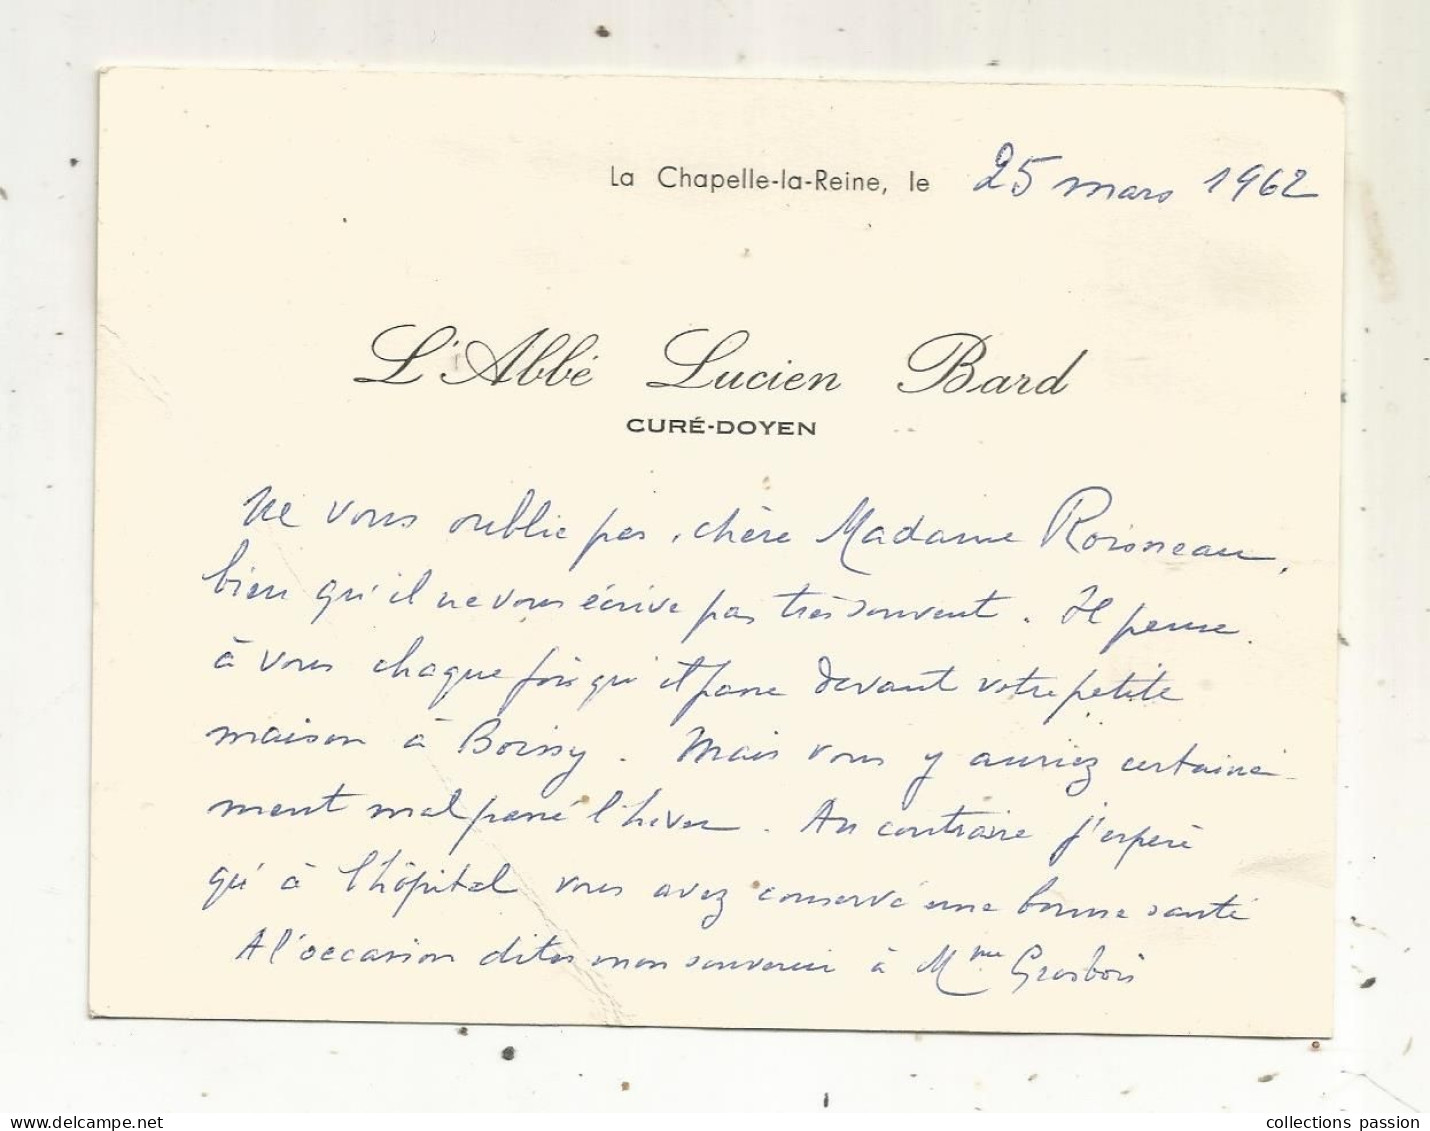 La Chapelle-la-Reine, le 25 mars 1962
L'Abbé Lucien Bard
CURÉ-DOYEN
Ne vous oublie pas, chère Madame Roisneau,
bien qu'il ne vous écrive pas très souvent. Il pense
à vous chaque fois qu'il passe devant votre petite
maison à Boissy. Mais vous y auriez certaine-
ment mal passé l'hiver. Au contraire j'espère
qu'à l'hôpital vous avez conservé une bonne santé
A l'occasion dites mon souvenir à Mme Grosbois
collections passion